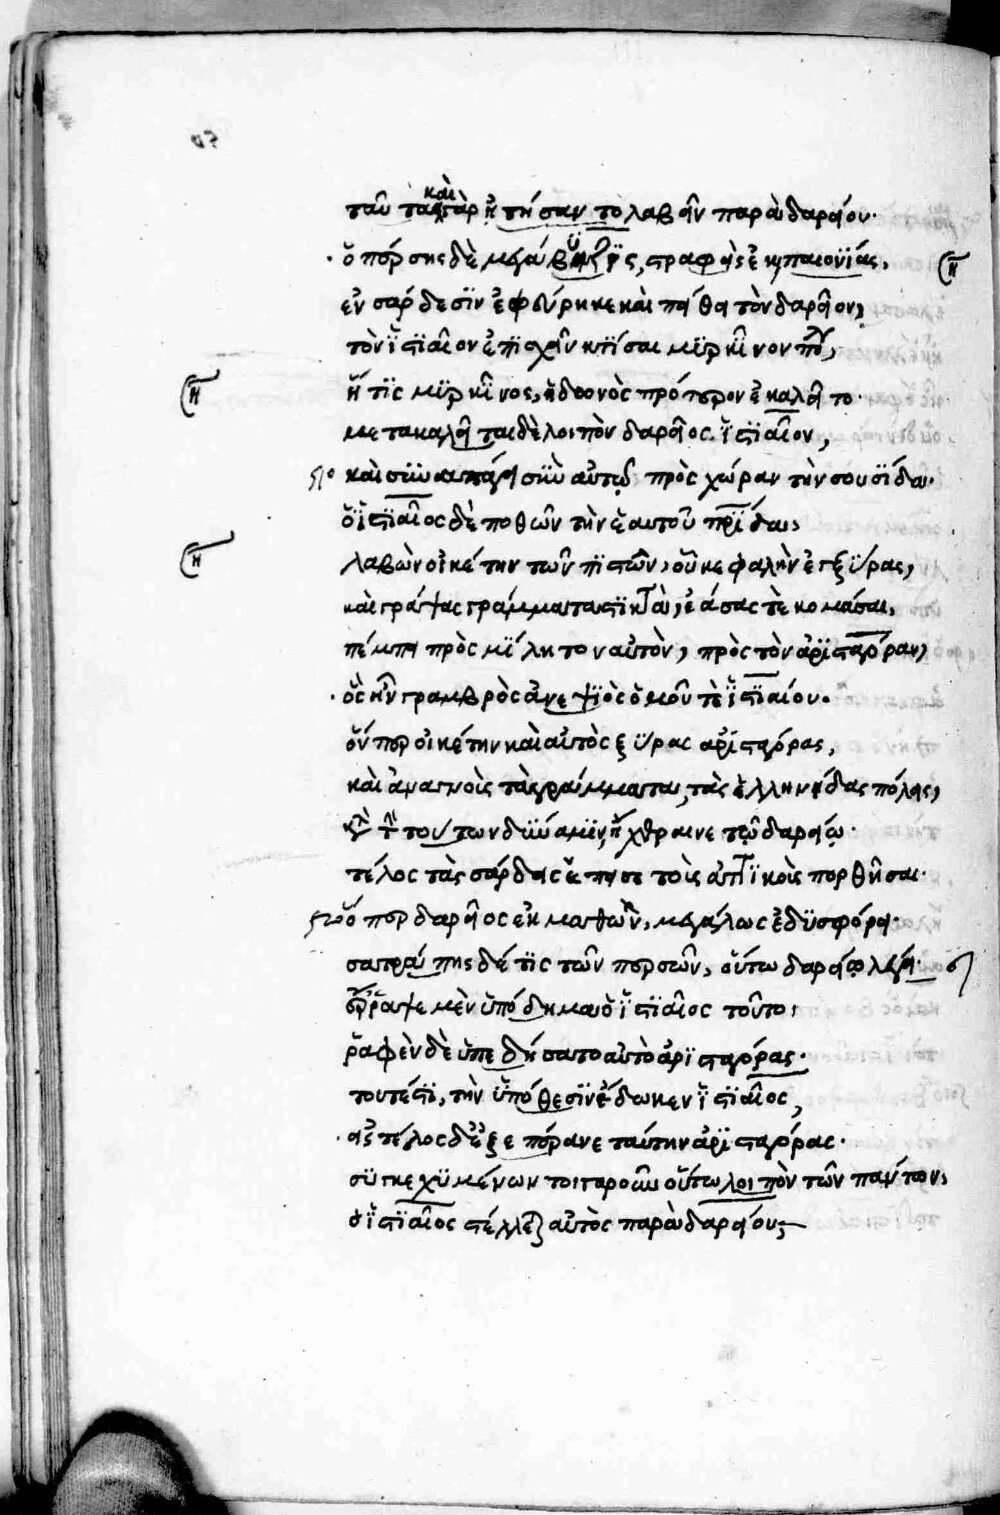 ταῦ τα καὶ γὰρ ᾐτήσαντο λαβεῖν παρὰ δαρείου.
ὁ πέρσης δὲ μεγάβυζος, στραφεὶς ἐκ παιονίας,
ἐν σάρδεσιν ἐφεύρηκε καὶ πείθει τὸν δαρεῖον,
τὸν ἱστιαῖον ἐπισχεῖν κτίσαι μύρκινον πόλιν,
ἥτις μύρκινος, ἠδωνὸς πρότερον ἐκαλεῖτο.
μετακαλεῖται δὲ λοιπὸν δαρεῖος ἱστιαῖον,
καὶ συναπαίρει σὺν αὐτῷ πρὸς χώραν τὴν σουσίδα.
ὁ ἱστιαῖος δὲ ποθῶν τὴν ἑαυτοῦ πατρίδα,
λαβὼν οἰκέτην τῶν πιστῶν, οὗ κεφαλὴν ἐγξύρας,
καὶ γράψας γράμματα στικτὰ, ἐάσας τε κομᾶσαι,
πέμπει πρὸς μίλητον αὐτὸν, πρὸς τὸν ἀρισταγόραν,
ὃς ἦν γραμβρὸς ἀνεψιὸς ὁμοῦ τε ἱστιαίου.
ὅνπερ οἰκέτην καὶ αὐτὸς ξύρας ἀρισταγόρας,
καὶ ἀναγνοὺς τὰ γράμματα, τὰς ἑλληνίδας πόλεις,
τούτων δύναμιν, ἤχθραινε τῷ δαρείῳ.
τέλος τὰς σάρδεις ἔπεισε τοῖς ἀττικοῖς πορθῆσαι.
ὅπερ δαρεῖος ἐκμαθὼν, μεγάλως ἐδυσφόρει.
σατράπης δέ τις τῶν περσῶν, οὕτω δαρείῳ λέγει.
ἔρραψε μὲν ὑπόδημα ὁ ἱστιαῖος τοῦτο,
ῥαφὲν δὲ ὑπεδήσατο αὐτὸ ἀρισταγόρας.
τουτέστι, τὴν ὑπόθεσιν ἐνέδωκεν ἱστιαῖος,
εἰς τέλος δ' ἐξεπέρανε ταύτην ἀρισταγόρας.
συγκεχυμένων τοιγαροῦν οὕτω λοιπὸν τῶν πάντων,
ὁ ἱστιαῖος στέλλεται αὐτὸς παρὰ δαρείου,